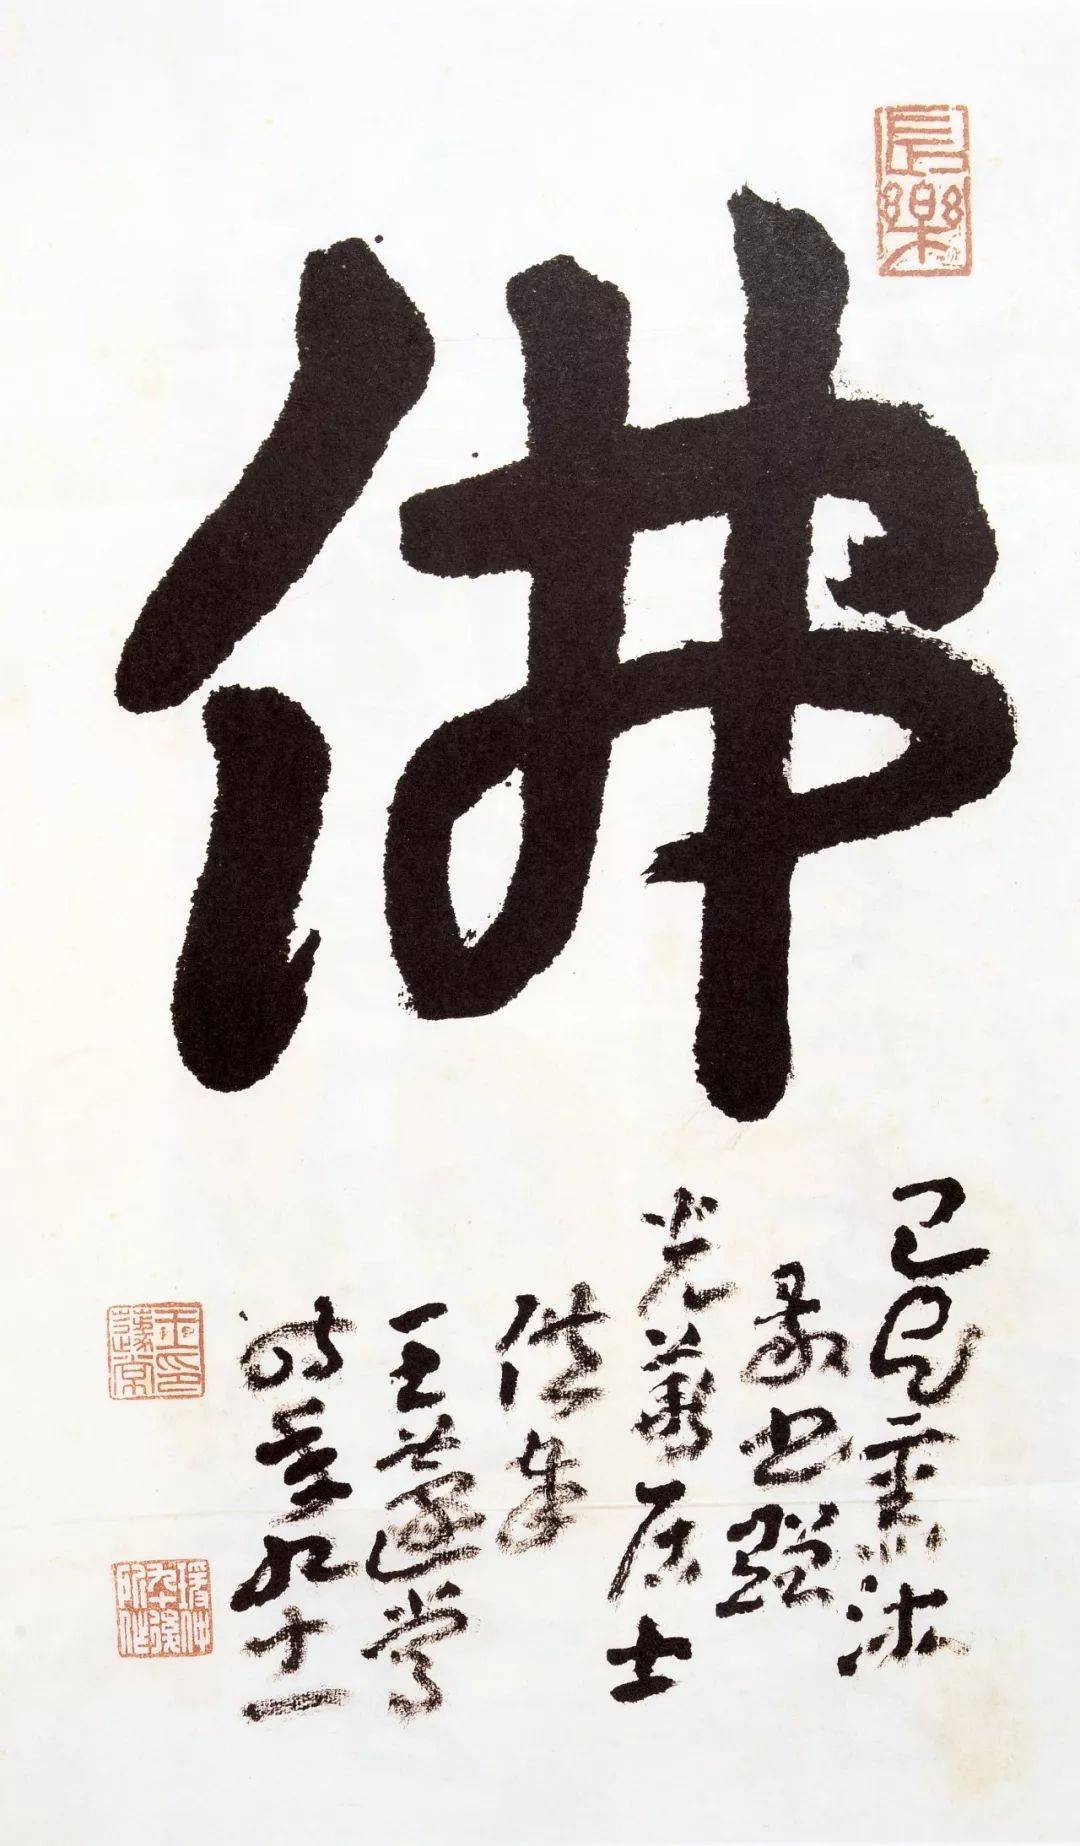 長樂
佛
己巳熏沐
敬書贈
光 居士
供奉
王蘧常
時年九十一
王蘧常印
瑗仲九十後所作